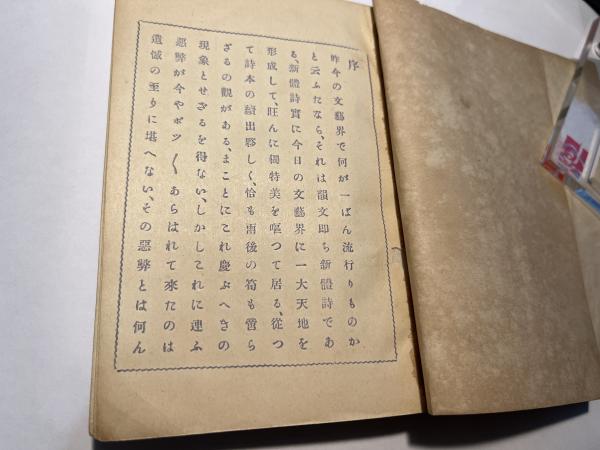 序
昨今の文藝界で何が一ばん流行りものか
と云ふたなら、それは韻文即ち新體詩であ
る、新體詩實に今日の文藝界に一大天地を
形成して、旺んに獨特美を謳つて居る、從つ
て詩本の續出夥しく、恰も雨後の筍も啻ら
ざるの觀がある、まことにこれ慶ぶへきの
現象とせざるを得ない、しかしこれに連ふ
惡弊が今やポツ〱あらはれて來たのは
遺憾の至りに堪へない、その惡弊とは何ん